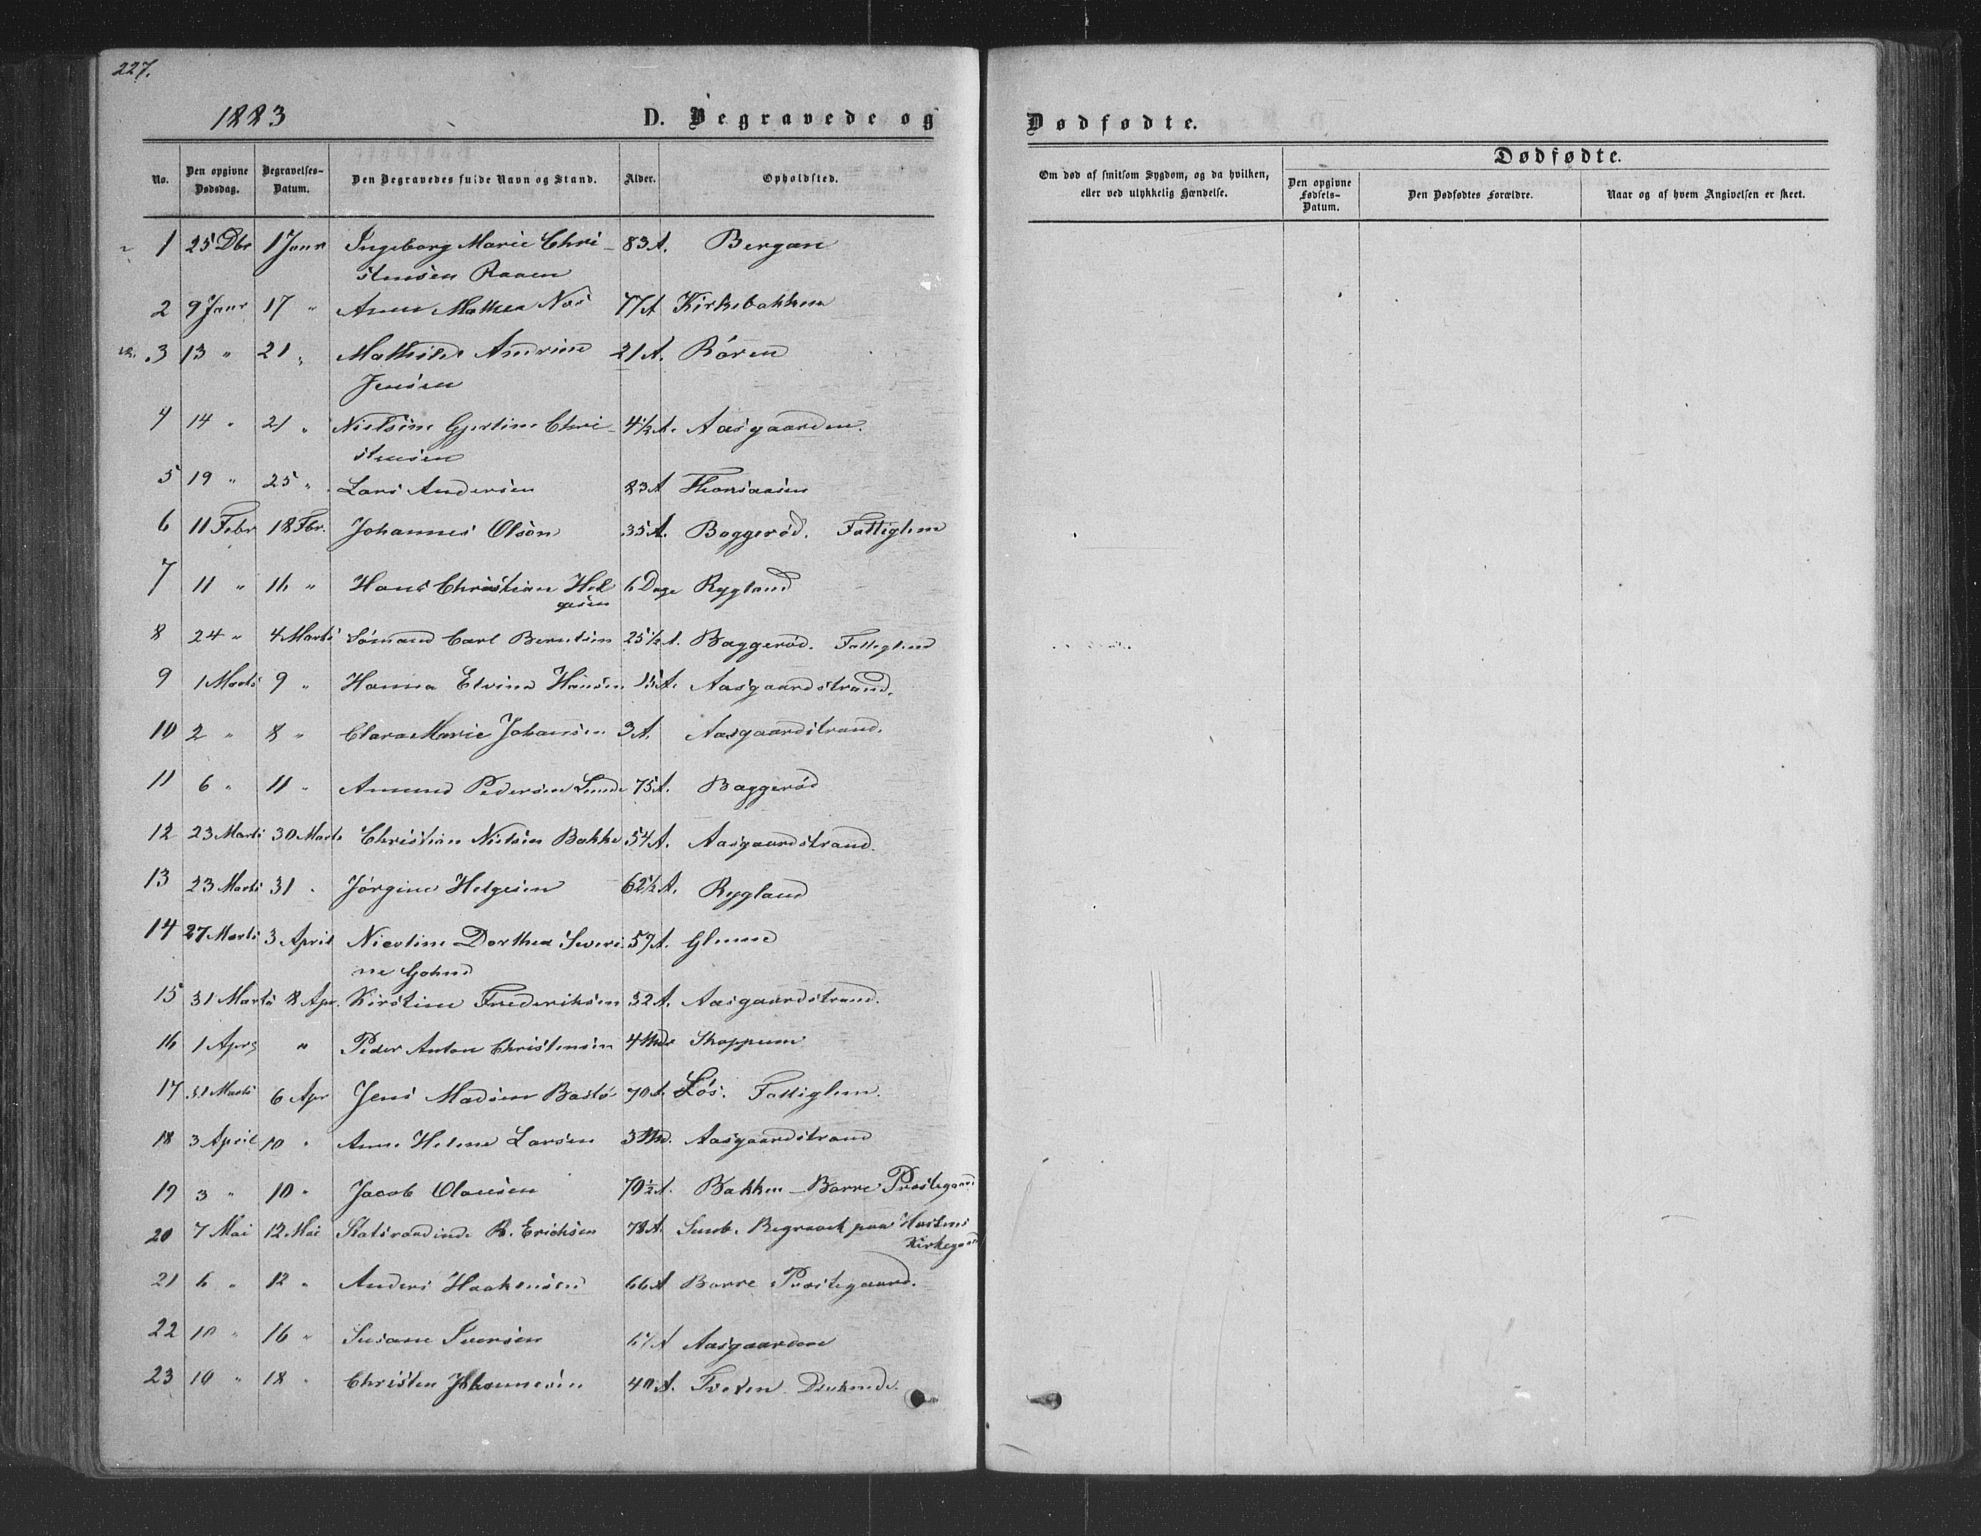 227.
1883
D. Begravede og
Dødfødte.
No.
Den opgivne Dødsdag.
Begravelses-Datum.
Den Begravedes fulde Navn og Stand.
Alder.
Opholdsted.
Om død af smitsom Sygdom, og da hvilken, eller ved ulykkelig Hændelse.
Dødfødte.
Den opgivne Fødsels-Datum.
Den Dødfødtes Forældre.
Naar og af hvem Angivelsen er skeet.
1 25 Dbr 1 Janr Ingeborg Marie Chri- 83 A. Bergan
stensen Raaen
2 9 Janr 17 " Anne Mathea Næs 77 A Kirkebakken
3 13 " 21 " Mathilde Andrine 21 A. Røren
Jensen
4 14 " 21 " Nielsine Gjertine Chri- 4½ A. Aasgaarden.
stensen
5 19 " 25 " Lars Andersen 83 A Thorsaasen
6 11 Febr 18 Fbr. Johannes Olson 35 A. Baggerød. Fattiglem
7 11 " 16 " Hans Christian Hel 6 Dage Rygland
gesen
8 24 " 4 Marts Sømand Carl Berntsen 25½ A. Baggerød. Fattiglem
9 1 Marts 9 " Hanna Elvine Hansen 15 A. Aasgaardstrand.
10 2 " 8 " Clara Marie Johansen 3 A. Aasgaardstrand.
11 6 " 11 " Amund Pedersen Lunde 75 A. Baggerød
12 23 Marts 30 Marts Christian Nielsen Bakke 54 A. Aasgaardstrand.
13 23 Marts 31 " Jørgine Helgesen 62½ A. Rygland
14 27 Marts 3 April Nicoline Dorthea Severi 59 A. Glenne
ne
15 31 Marts 8 Apr. Kirstine Frederiksen 32 A. Aasgaardstrand.
16 1 Apr " Peder Anton Christensen 4 Mdr Skoppum
17 31 Marts 6 Apr Jens Madsen Bastø 70 A. Løs. Fattiglem.
18 3 April 10 " Anne Helene Larsen 3 Md. Aasgaardstrand
19 3 " 10 " Jacob Olausen 70½ A. Bakken - Borre Præstegaard
20 7 Mai 12 Mai Statsraadinde R. Erichsen 78 A. Semb. Begravet paa Horstens
Kirkegaard
21 6 " 12 " Anders Haakensen 66 A Borre Præstegaard.
22 10 " 16 " Susane Iversen A Aasgaarden
23 10 " 18 " Christen Johannesen 40 A. Tveten.